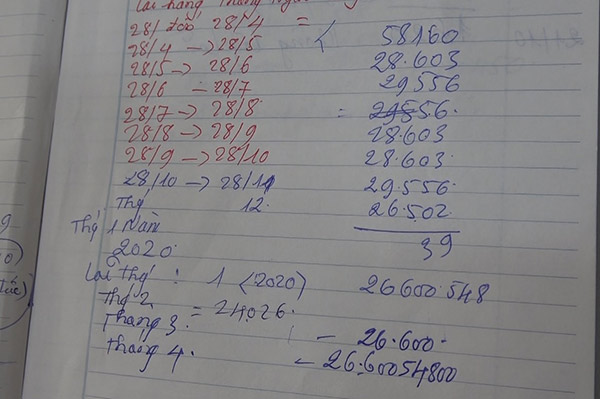 Lãi hàng tháng
28/ đến 28/4 = 58160
28/4 → 28/5 28.603
28/5 → 28/6 29556
28/6 - 28/7
28/7 → 28/8 = 29556.
28/8 → 28/9 28.603
28/9 → 28/10 28.603.
28/10 → 28/11 29.556.
Thg 12. 26.502.
Thg 1 Năm 39
2020.
Lãi Thg : 1 (2020) 26600.548
Thg 2 = 24026.
Tháng 3. - 26.600.
Tháng 4. - 26.60054800